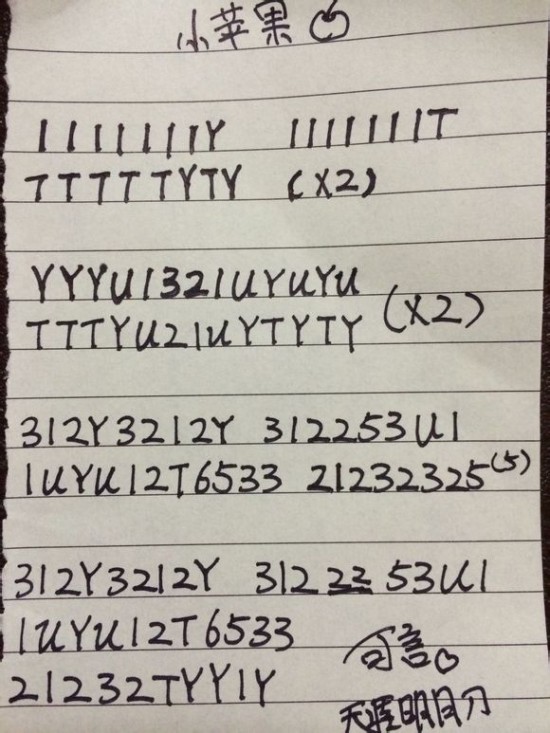 小苹果
1111111Y 1111111T
TTTTTYTY (X2)
YYYU1321UYUYU
TTTYU21UYTYTY (X2)
312Y3212Y 312253U1
1UYU12T6533 21232325(5)
312Y3212Y 3122253U1
1UYU12T6533
21232TYY1Y
天涯明月刀